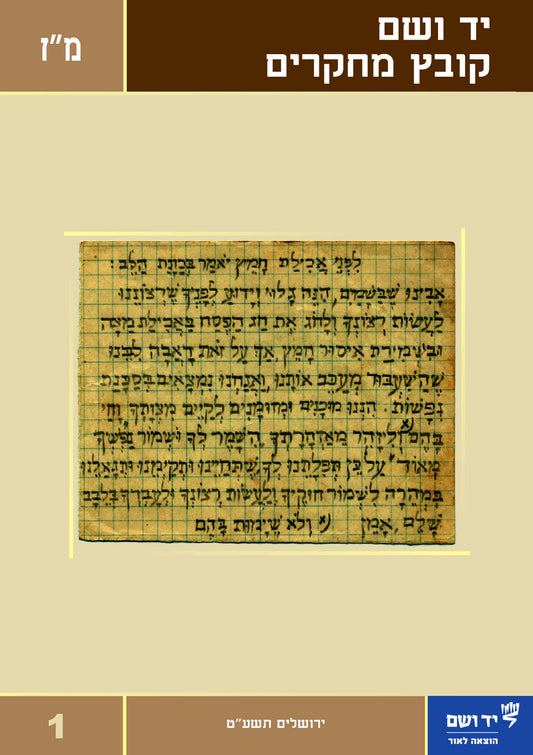 יד ושם
קובץ מחקרים
מ"ז
לִפְנֵי אֲכִילַת חָמֵץ יֹאמַר בְּכַוָּנַת הַלֵּב:
אָבִינוּ שֶׁבַּשָּׁמַיִם, הִנֵּה גָלוּי וְיָדוּעַ לְפָנֶיךָ שֶׁרְצוֹנֵנוּ
לַעֲשׂוֹת רְצוֹנְךָ וְלָחוֹג אֶת חַג הַפֶּסַח בַּאֲכִילַת מַצָּה
וּבִשְׁמִירַת אִיסוּר חָמֵץ, אַךְ עַל זֹאת דָּאֲבָה לִבֵּנוּ
שֶׁהַשִּׁעְבּוּד מְעַכֵּב אוֹתָנוּ, וַאֲנַחְנוּ נִמְצָאִים בְּסַכָּנַת
נְפָשׁוֹת. הִנְנוּ מוּכָנִים וּמְזוּמָנִים לְקַיֵּים מִצְוָתֶךָ "וָחַי
בָּהֶם" א) וְלִיזָּהֵר מֵאַזְהָרָתְךָ "הִשָּׁמֶר לְךָ וּשְׁמוֹר נַפְשְׁךָ
מְאוֹד" עַל כֵּן תְּפִלָּתֵנוּ לְךָ שֶׁתְּחַיֵּינוּ וּתְקַיְּמֵנוּ וְתִגְאָלֵנוּ
בִּמְהֵרָה לִשְׁמוֹר חוּקֶּיךָ וְלַעֲשׂוֹת רְצוֹנְךָ וּלְעָבְדְּךָ בְּלֵבָב
שָׁלֵם, אָמֵן א) וְלֹא שֶׁיָּמוּת בָּהֶם
1
ירושלים תשע"ט
יד ושם
הוצאה לאור